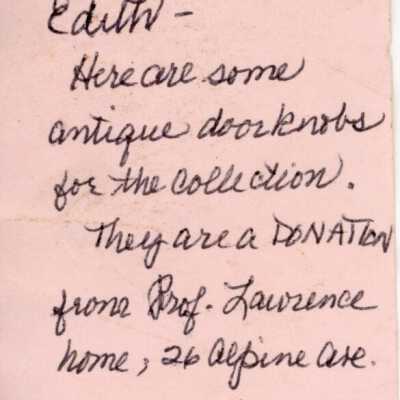 Edith –
Here are some
antique doorknobs
for the collection.
They are a DONATION
from Prof. Lawrence
home, 26 Alpine Ave.